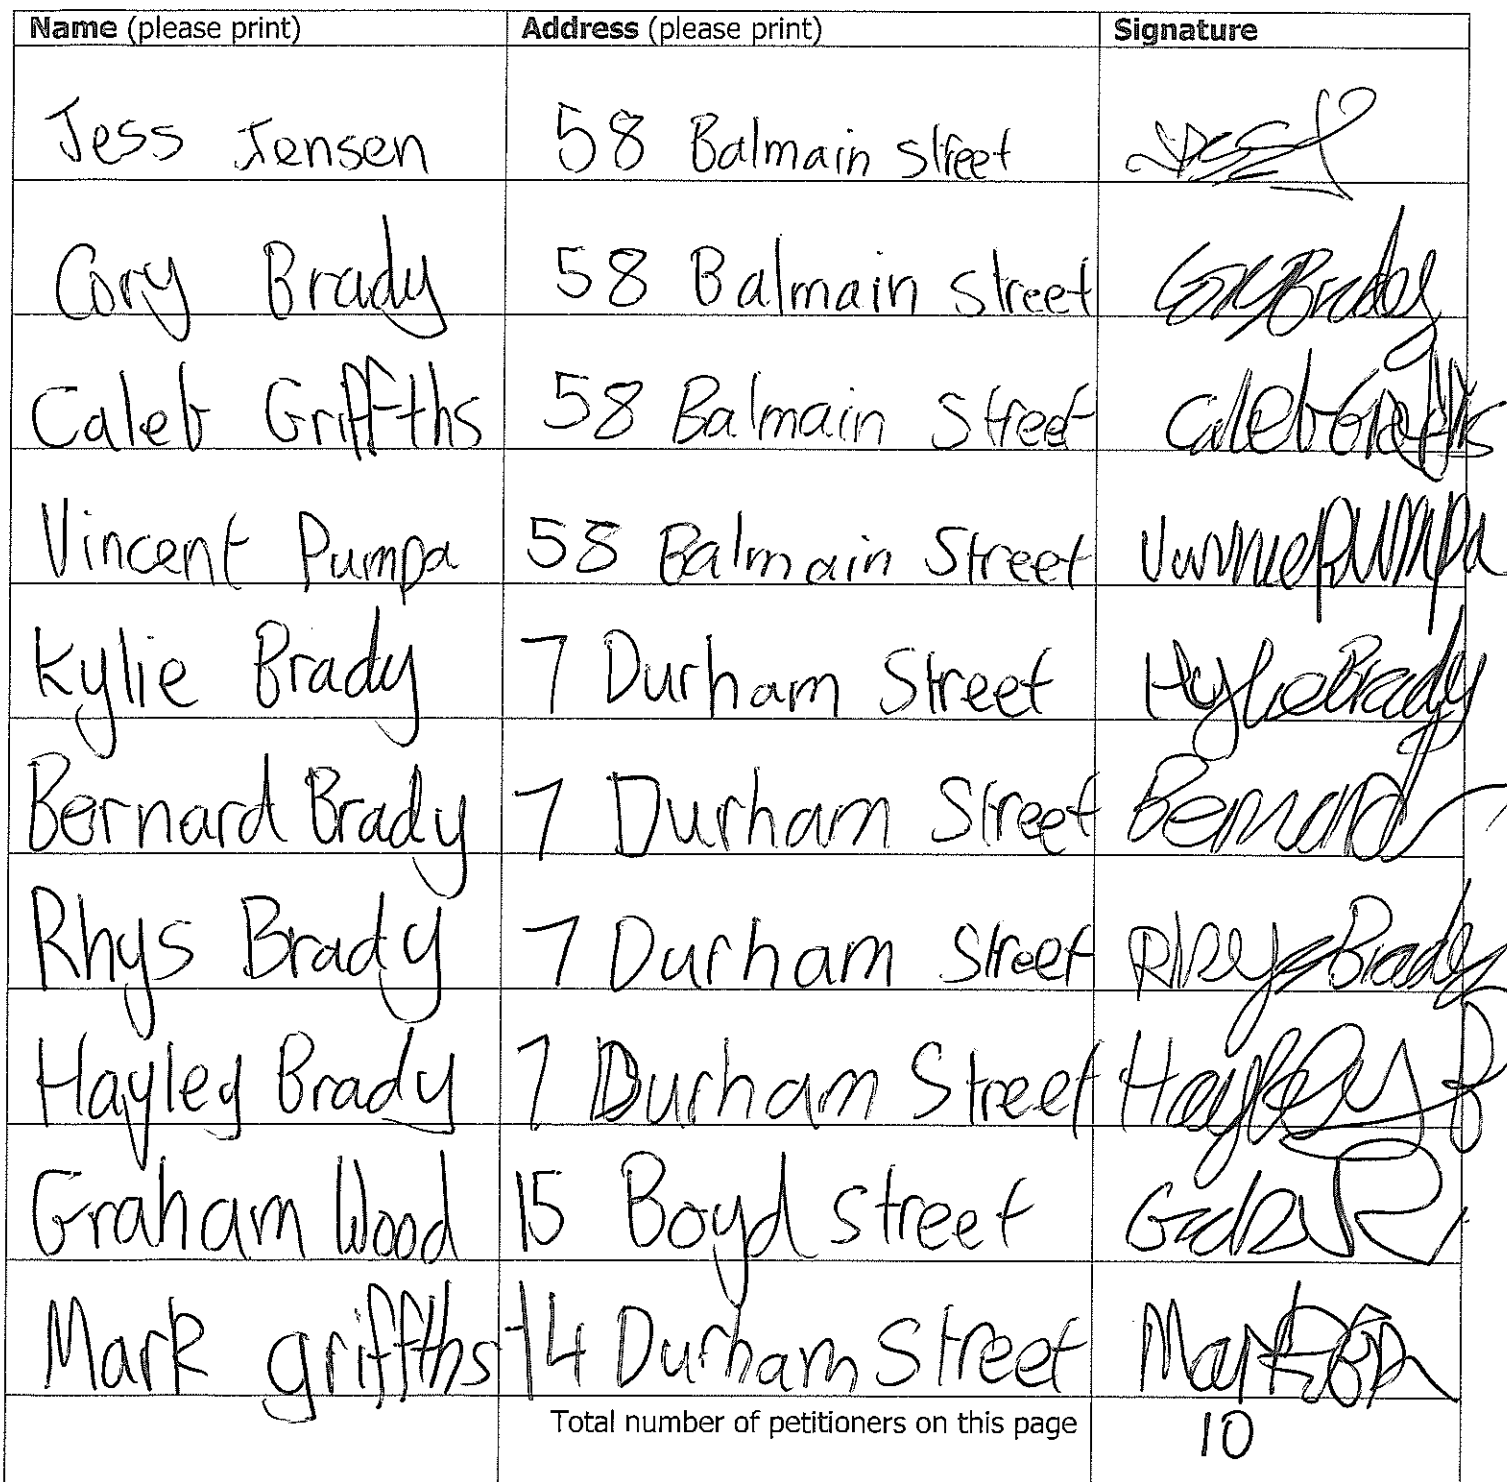 Name (please print) Address (please print) Signature
Jess Jensen 58 Balmain street
Cory Brady 58 Balmain street Cory Brady
Caleb Griffths 58 Balmain Street Caleb Griffths
Vincent Pumpa 58 Balmain Street Vinnie Pumpa
Kylie Brady 7 Durham Street Kylie Brady
Bernard Brady 7 Durham Street Bernard
Rhys Brady 7 Durham Street Rhys Brady
Hayley Brady 7 Durham Street Hayley B
Graham Wood 15 Boyd street
Mark griffths 14 Durham Street Mark
Total number of petitioners on this page 10